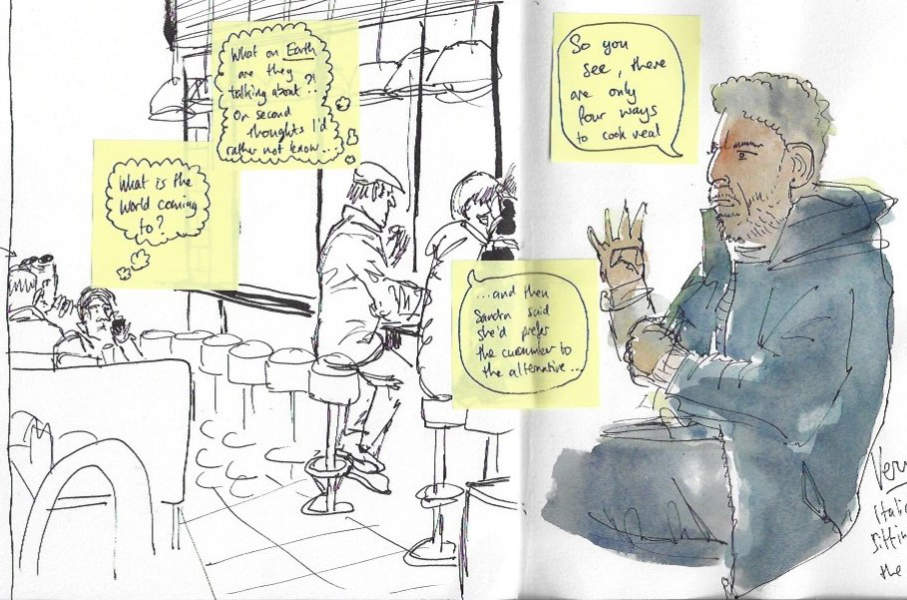 What on Earth
are they
talking about?!
On second
thoughts I'd
rather not know...
What is the
world coming
to?
So you
see, there
are only
four ways
to cook veal
...and then
Sandra said
she'd prefer
the cucumber to
the alternative...
sittin
the